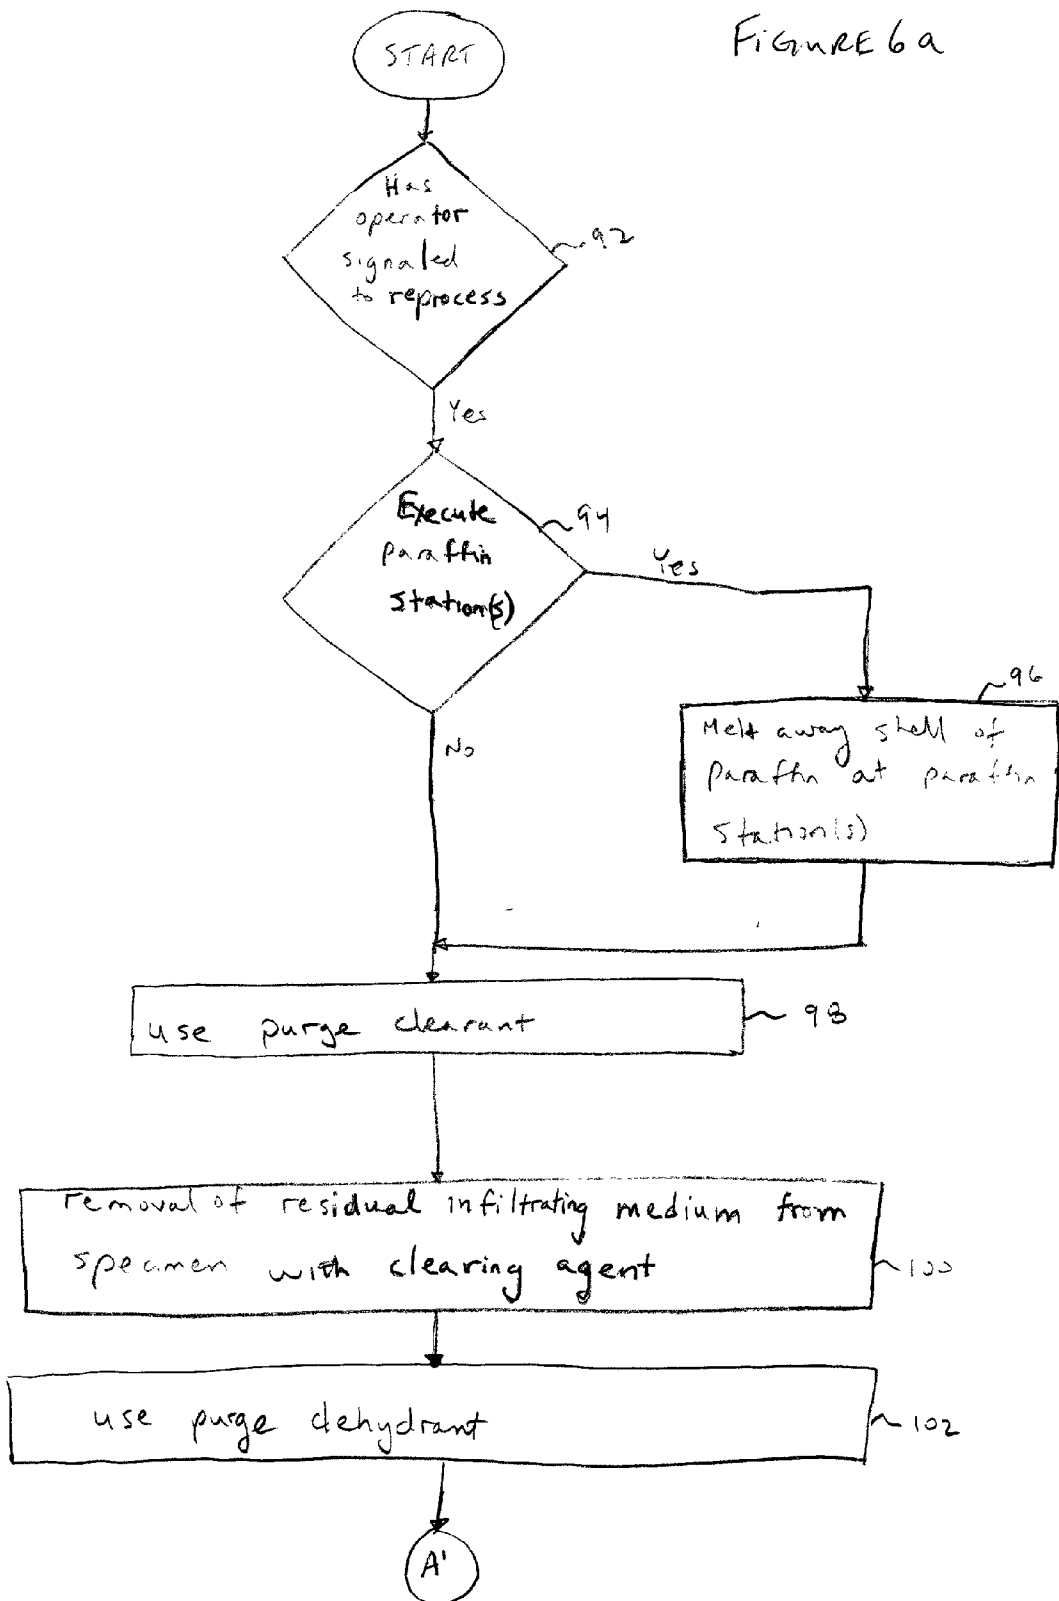 FIGURE 6a
START
Has
operator
signaled
to reprocess
92
Yes
Execute
paraffin
station(s)
94
Yes
96
Melt away shell of
paraffin at paraffin
station(s)
No
use purge clearant
98
removal of residual infiltrating medium from
specimen with clearing agent
100
use purge dehydrant
102
A'